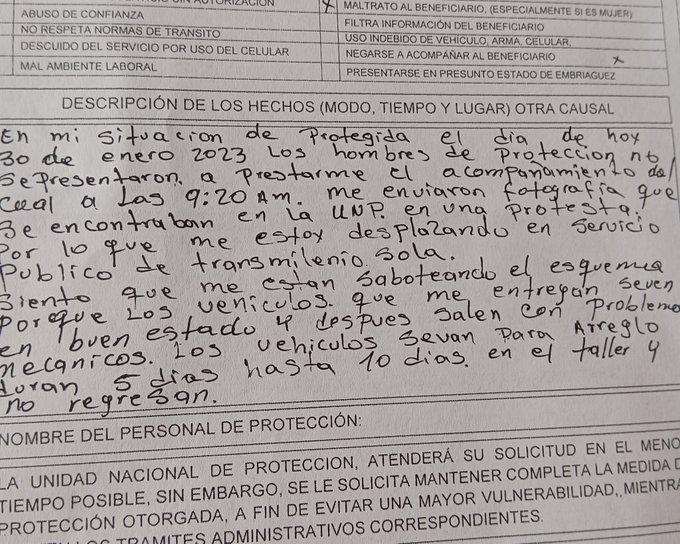 SIN AUTORIZACIÓN
ABUSO DE CONFIANZA
NO RESPETA NORMAS DE TRANSITO
DESCUIDO DEL SERVICIO POR USO DEL CELULAR
MAL AMBIENTE LABORAL
X MALTRATO AL BENEFICIARIO, (ESPECIALMENTE SI ES MUJER)
FILTRA INFORMACIÓN DEL BENEFICIARIO
USO INDEBIDO DE VEHÍCULO, ARMA, CELULAR,
NEGARSE A ACOMPAÑAR AL BENEFICIARIO X
PRESENTARSE EN PRESUNTO ESTADO DE EMBRIAGUEZ
DESCRIPCIÓN DE LOS HECHOS (MODO, TIEMPO Y LUGAR) OTRA CAUSAL
En mi situacion de Protegida el dia de hoy
30 de enero 2023 Los hombres de Proteccion no
se presentaron. a Prestarme el acompanamiento del
cual a Las 9:20 Am. me enviaron fotografia que
se encontraban en La UNP. en una Protesta.
Por lo que me estoy desplazando en servicio
Publico de transmilenio sola.
siento que me estan saboteando el esquema
Porque Los vehiculos. que me entregan seven
en buen estado y despues salen con Problema
mecanicos. Los vehiculos sevan Para Arreglo
duran 5 dias hasta 10 dias. en el taller y
no regresan.
NOMBRE DEL PERSONAL DE PROTECCIÓN:
LA UNIDAD NACIONAL DE PROTECCION, ATENDERÁ SU SOLICITUD EN EL MENO
TIEMPO POSIBLE, SIN EMBARGO, SE LE SOLICITA MANTENER COMPLETA LA MEDIDA D
PROTECCIÓN OTORGADA, A FIN DE EVITAR UNA MAYOR VULNERABILIDAD, MIENTRA
LOS TRAMITES ADMINISTRATIVOS CORRESPONDIENTES.